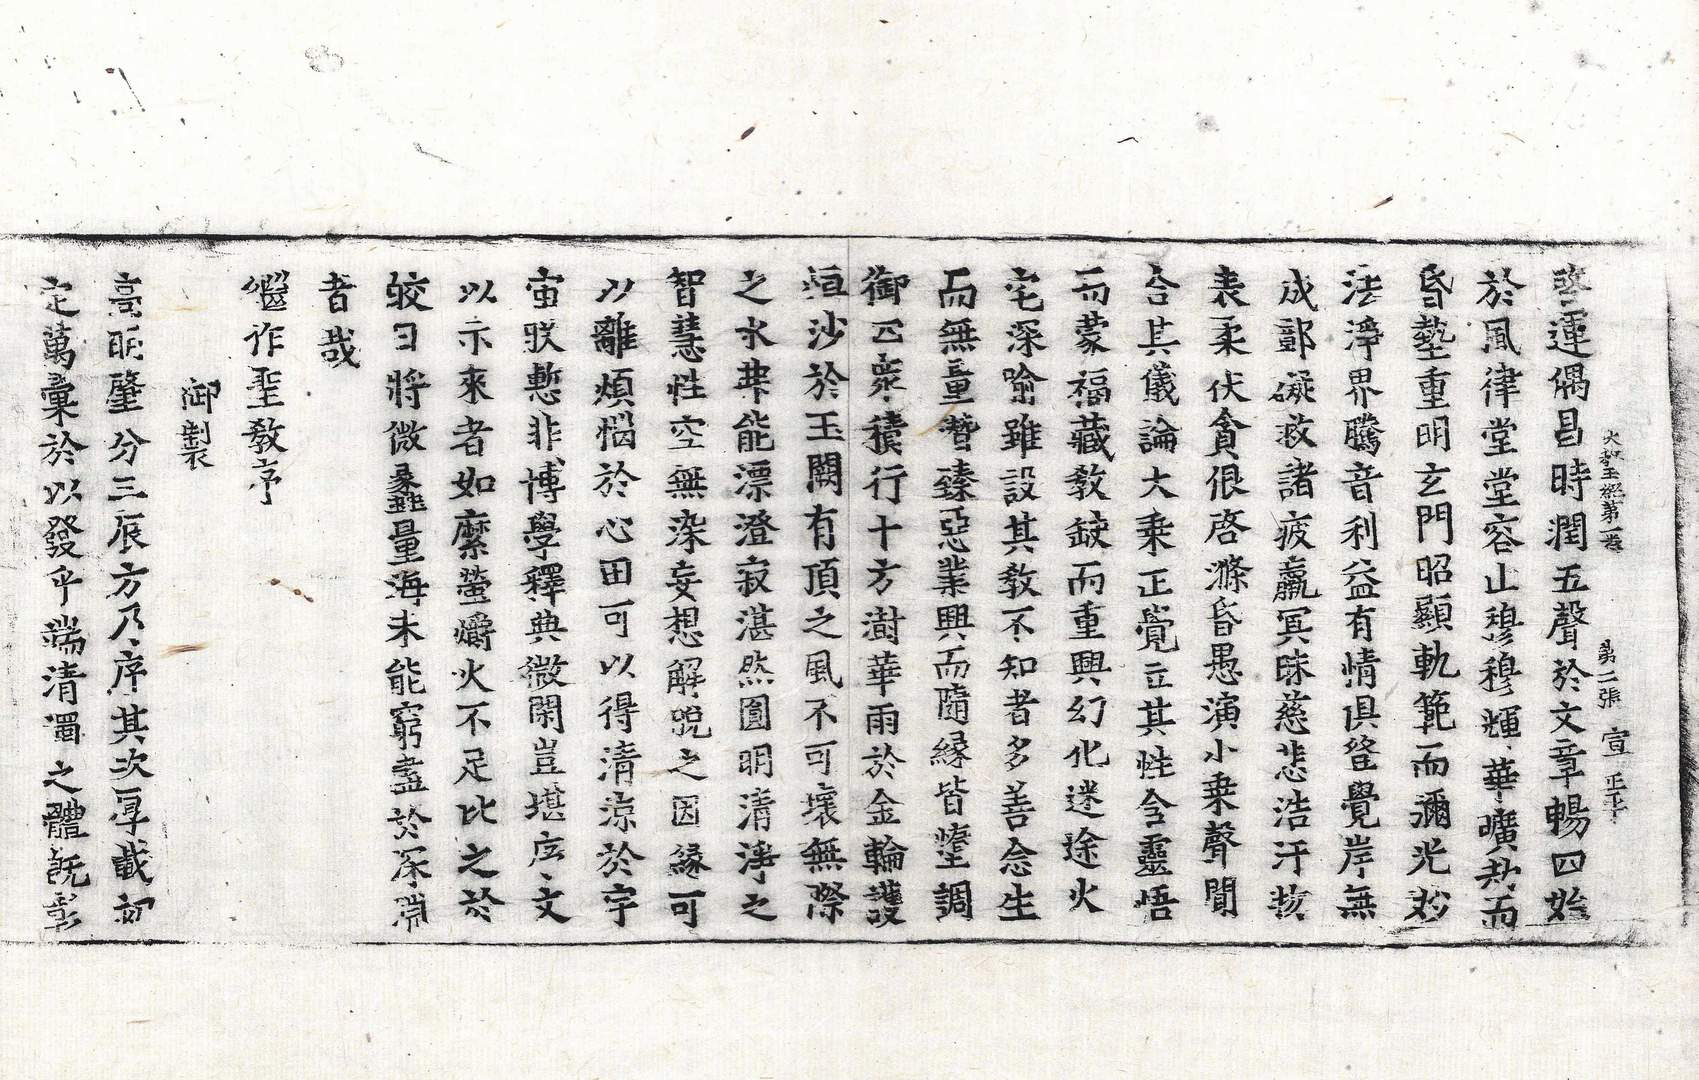 大教王經第一卷 第二張 宣
啓運偶昌時潤五聲於文章暢四始
於風律堂堂容止穆穆輝華曠劫而
昏墊重明玄門昭顯軌範而彌光妙
法淨界騰音利益有情俱登覺岸無
成鄣礙救諸疲羸冥昧慈悲浩汗物
表柔伏貪佷啓滌昏愚演小乗聲聞
合其儀論大乗正覺立其性含靈悟
而蒙福藏教缺而重興幻化迷途火
宅深喻雖設其教不知者多善念生
而無量暬臻惡業興而隨縁皆墮調
御四衆積行十方澍華雨於金輪護
恒沙於玉闕有頂之風不可壞無際
之水弗能漂澄寂湛然圎明清淨之
智慧性空無染妄想解脱之因縁可
以離煩惱於心田可以得清涼於宇
宙朕慙非博學釋典微閑豈堪序文
以示來者如縻螢爝火不足比之於
皎日將微蠡量海未能窮盡於深淵
者哉
繼作聖教序
御製
高明肇分三辰方乃序其次厚載初
定萬彙於以發乎端清濁之體旣彰